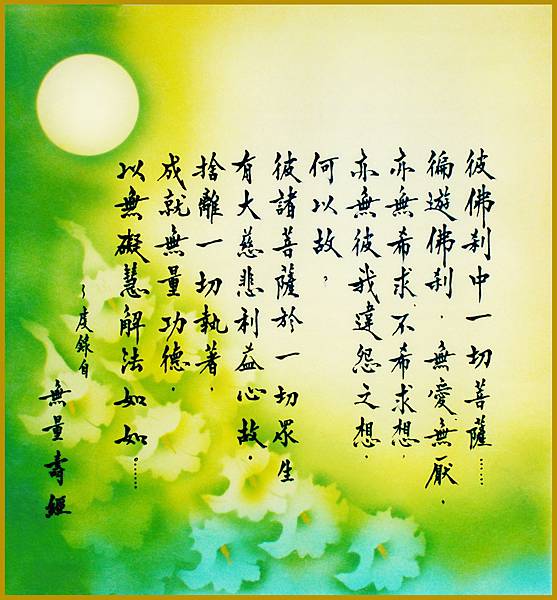 彼佛刹中一切菩薩……
徧遊佛刹，無愛無厭，
亦無希求、不希求想，
亦無彼我違怨之想。
何以故，
彼諸菩薩於一切眾生
有大慈悲利益心故。
捨離一切執著，
成就無量功德。
以無礙慧解法如如。……
～度錄自
無量壽經